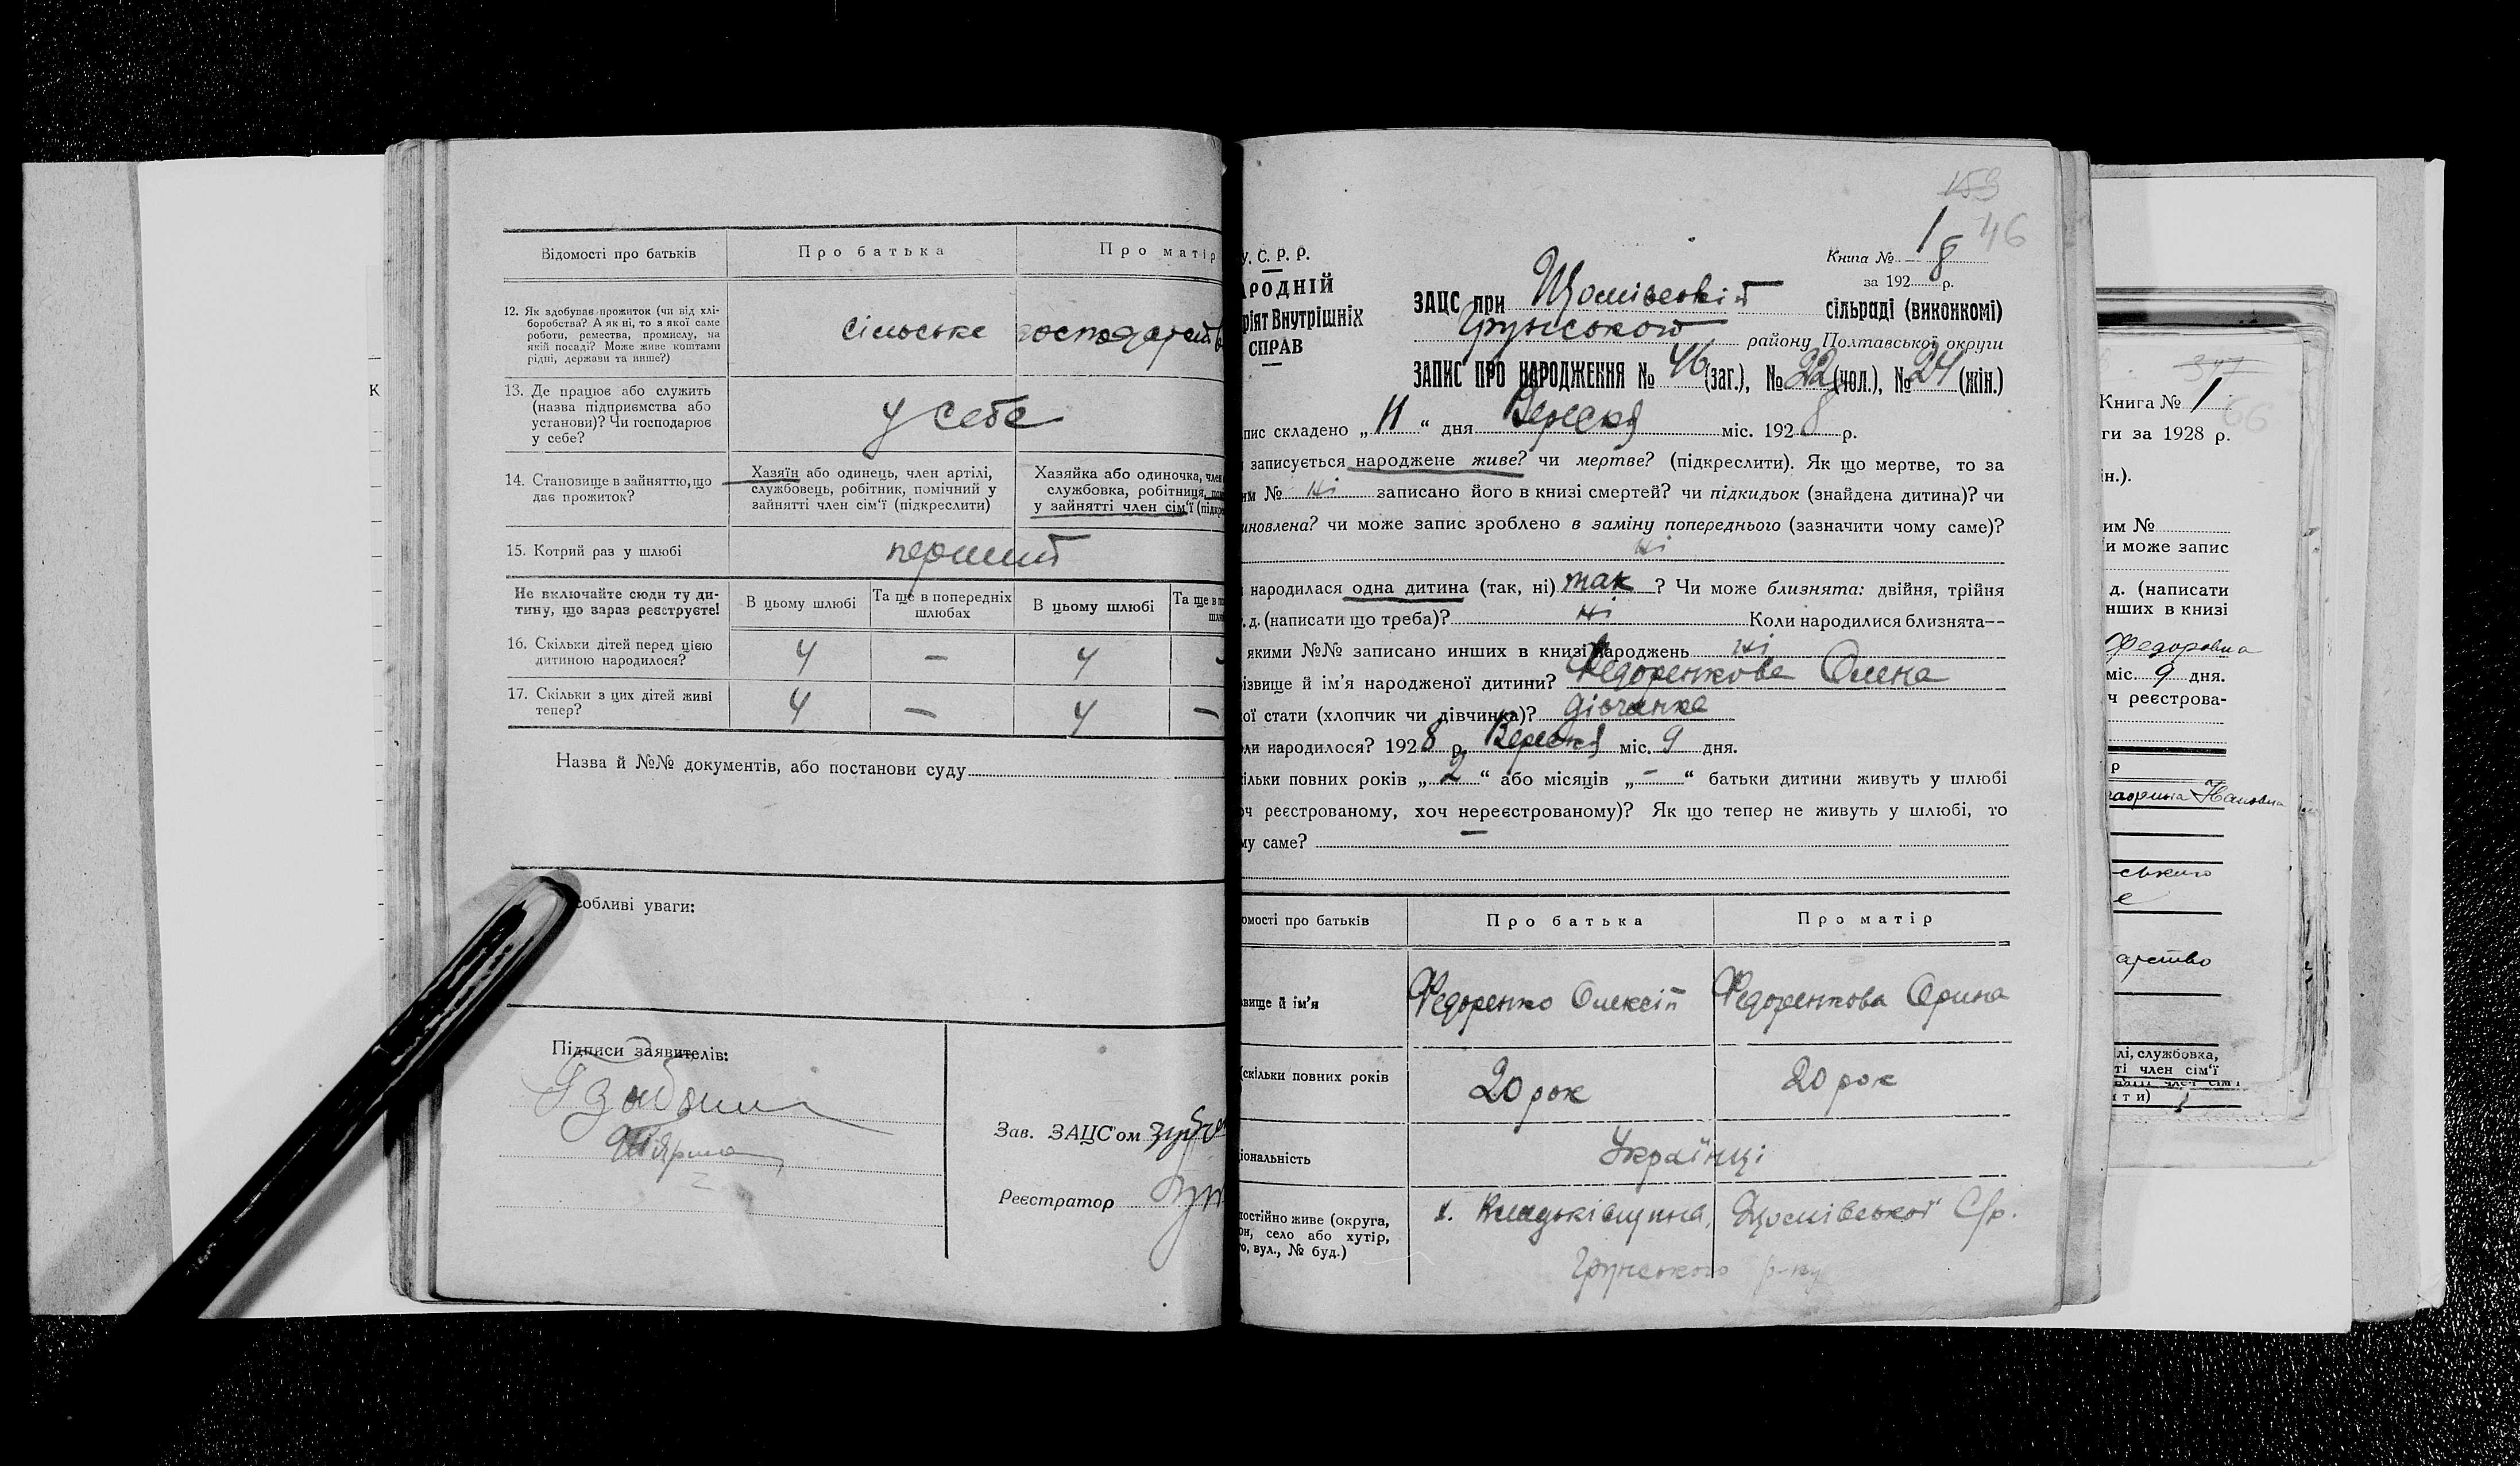 Відомості про батьків
Про батька
Про матір
12. Як здобуває прожиток (чи від хлі-
боробства? А як ні, то з якої саме
роботи, ремества, промислу, на
якій посаді? Може живе коштами
рідні, держави та инше?)
сільське господарств
13. Де працює або служить
(назва підприємства або
установи)? Чи господарює
у себе?
у себе
14. Становище в зайняттю, що
дає прожиток?
Хазяїн або одинець, член артілі,
службовець, робітник, помічний у
зайнятті член сім'ї (підкреслити)
Хазяйка або одиночка, член
службовка, робітниця,
у зайнятті член сім'ї (підкре
15. Котрий раз у шлюбі
перший
Не включайте сюди ту ди-
тину, що зараз реєструєте!
В цьому шлюбі
Та ще в попередніх
шлюбах
В цьому шлюбі
Та ще в по
16. Скільки дітей перед цією
дитиною народилося?
4 – 4
17. Скільки з цих дітей живі
тепер?
4 – 4 –
Назва й №№ документів, або постанови суду
собливі уваги:
Підписи заявителів:
Зав. ЗАЦС'ом
Реєстратор
153
46
У. С. Р. Р.
РОДНІЙ
ріят Внутрішніх
СПРАВ
Книга № 1
за 1928 р.
ЗАЦС при
сільраді (виконкомі)
Грунського району Полтавської округи
ЗАПИС ПРО НАРОДЖЕННЯ № 46 (заг.), № 22 (чол.), № 24 (жін.)
пис складено „11“ дня Вересня міс. 1928 р.
записується народжене живе? чи мертве? (підкреслити). Як що мертве, то за
им № ні записано його в книзі смертей? чи підкидьок (знайдена дитина)? чи
иновлена? чи може запис зроблено в заміну попереднього (зазначити чому саме)?
ні
народилася одна дитина (так, ні) так? Чи може близнята: двійня, трійня
т. д. (написати що треба)? ні Коли народилися близнята—
якими №№ записано инших в книзі народжень ні
ізвище й ім'я народженої дитини? Федоренкова Олена
ої стати (хлопчик чи дівчинка)? дівчинка
ли народилося? 1928 р. Вересня міс. 9 дня.
ільки повних років „2“ або місяців „-“ батьки дитини живуть у шлюбі
оч реєстрованому, хоч нереєстрованому)? Як що тепер не живуть у шлюбі, то
му саме?
омості про батьків
Про батька
Про матір
звище й ім'я
Федоренко Олексій
Федоренкова Орина
(скільки повних років
20 рок
20 рок
іональність
Українці
постійно живе (округа,
он, село або хутір,
о, вул., № буд.)
С/р.
Грунського р-ну
К
347
Книга № 1
66
ги за 1928 р.
ін.).
им №
и може запис
д. (написати
нших в книзі
Федоровна
міс. 9 дня.
ч реєстрова-
р
Ивановна
ського
е
арство
лі, службовка,
ті член сім'ї
ити)